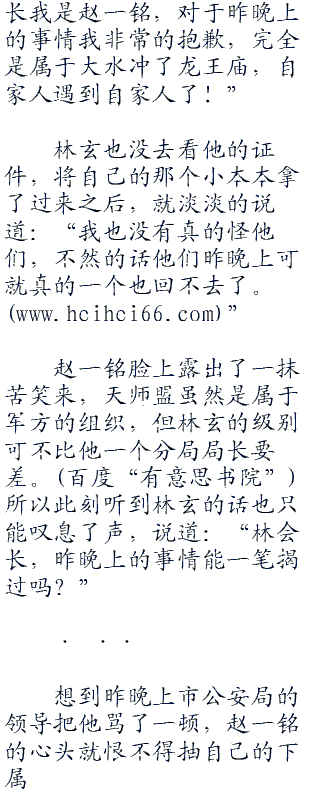 长我是赵一铭，对于昨晚上
的事情我非常的抱歉，完全
是属于大水冲了龙王庙，自
家人遇到自家人了！”
林玄也没去看他的证
件，将自己的那个小本本拿
了过来之后，就淡淡的说
道：“我也没有真的怪他
们，不然的话他们昨晚上可
就真的一个也回不去了。
(www.hcihci66.com)”
赵一铭脸上露出了一抹
苦笑来，天师盟虽然是属于
军方的组织，但林玄的级别
可不比他一个分局局长要
差。(百度“有意思书院”)
所以此刻听到林玄的话也只
能叹息了声，说道：“林会
长，昨晚上的事情能一笔揭
过吗？”
. . .
想到昨晚上市公安局的
领导把他骂了一顿，赵一铭
的心头就恨不得抽自己的下
属